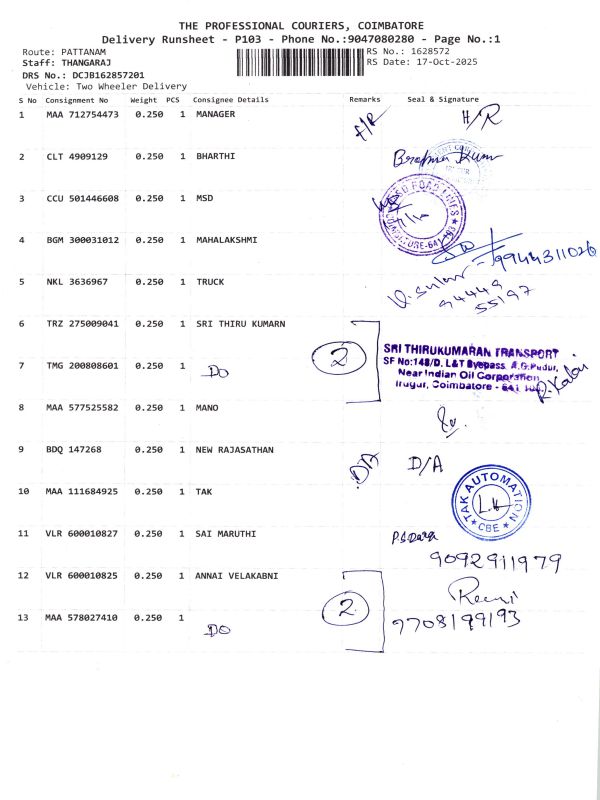 THE PROFESSIONAL COURIERS, COIMBATORE
Delivery Runsheet - P103 - Phone No.:9047080280 - Page No.:1
Route: PATTANAM
RS No.: 1628572
Staff: THANGARAJ
RS Date: 17-Oct-2025
DRS No.: DCJB162857201
Vehicle: Two Wheeler Delivery
S No Consignment No Weight PCS Consignee Details Remarks Seal & Signature
1 MAA 712754473 0.250 1 MANAGER H/R
2 CLT 4909129 0.250 1 BHARTHI
3 CCU 501446608 0.250 1 MSD
4 BGM 300031012 0.250 1 MAHALAKSHMI
9944311026
5 NKL 3636967 0.250 1 TRUCK
94449
55197
6 TRZ 275009041 0.250 1 SRI THIRU KUMARN
2
SRI THIRUKUMARAN TRANSPORT
SF No:148/D. L&T Byepass, A.G.Pudur,
Near Indian Oil Corporation
Irugur, Coimbatore - 641 103.
R. Kalai
7 TMG 200808601 0.250 1 DO
8 MAA 577525582 0.250 1 MANO
9 BDQ 147268 0.250 1 NEW RAJASATHAN D/A D/A
10 MAA 111684925 0.250 1 TAK
TAK AUTOMATION
CBE
11 VLR 600010827 0.250 1 SAI MARUTHI
9092911979
12 VLR 600010825 0.250 1 ANNAI VELAKABNI
2
9708199193
13 MAA 578027410 0.250 1 DO